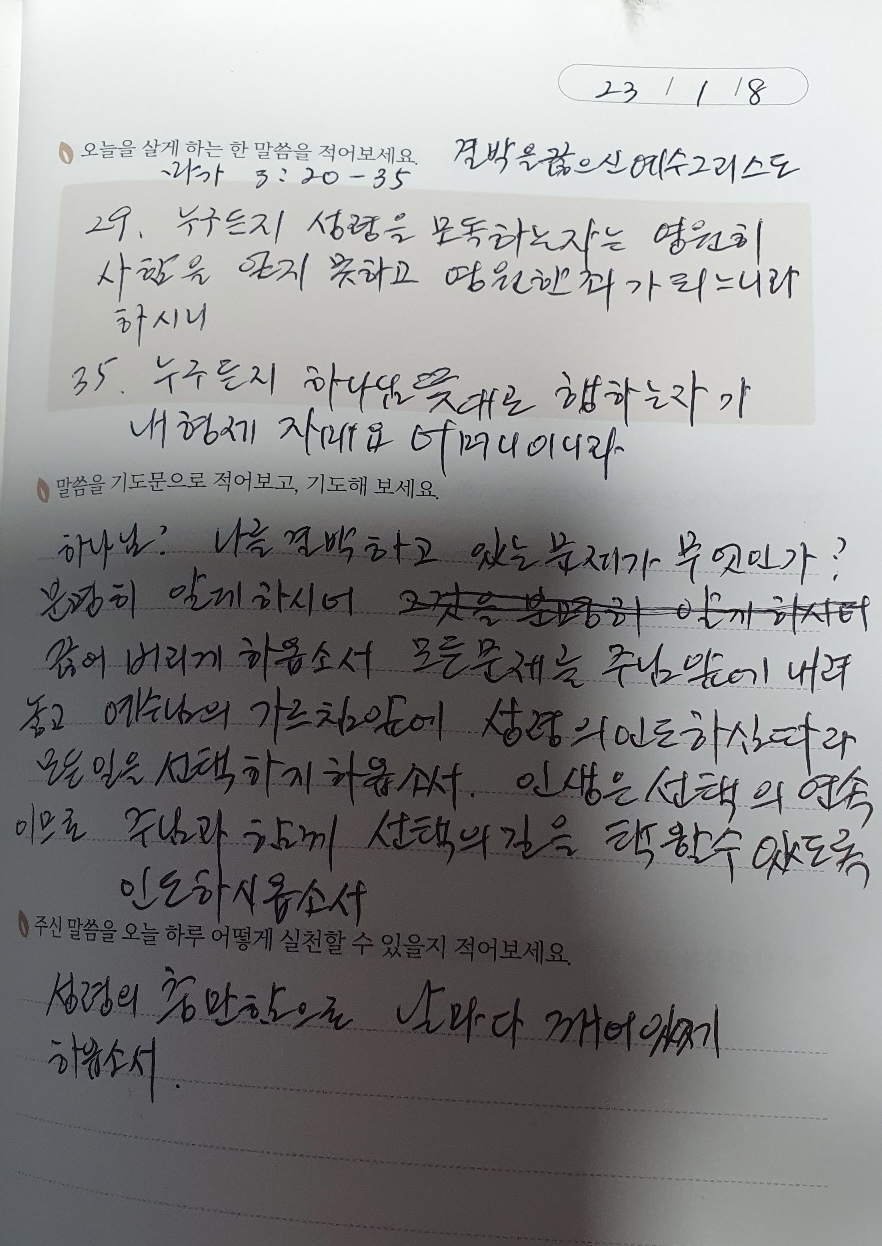 23 / 1 / 8
오늘을 살게 하는 한 말씀을 적어보세요. 결박을 끊으신 예수그리스도
3 : 20 - 35
29. 누구든지 성령을 모독하는자는 영원히
사함을 얻지 못하고 영원한 죄가 되느니라
하시니
35. 누구든지 하나님 뜻대로 행하는자가
내 형제 자매요 어머니이니라
말씀을 기도문으로 적어보고, 기도해 보세요.
하나님? 나를 결박하고 있는 문제가 무엇인가?
분명히 알게 하시어 그것을 분명히 알게 하시어
끊어 버리게 하옵소서 모든문제를 주님앞에 내려
놓고 예수님의 가르침앞에 성령의인도하심따라
모든일을 선택하게 하옵소서. 인생은 선택의 연속
이므로 주님과 함께 선택의길을 택할수 있도록
인도하시옵소서
주신 말씀을 오늘 하루 어떻게 실천할 수 있을지 적어보세요.
성령의 충만함으로 날마다 깨어있게
하옵소서.